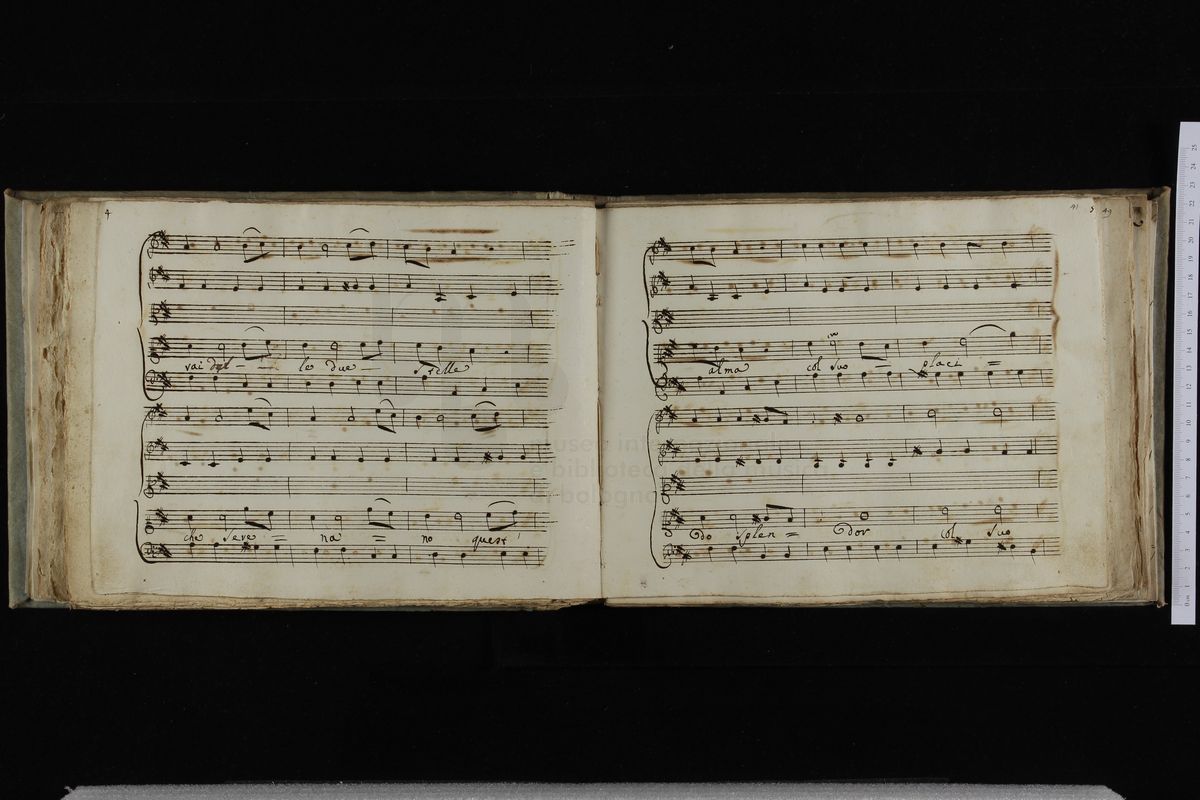 4
vai del - - le due - Stelle
che sere = na = no quest'
41 5 49
alma col suo = placi =
do splen = dor col suo
museo internazionale
e biblioteca della musica
di bologna
0 cm 1 2 3 4 5 6 7 8 9 10 11 12 13 14 15 16 17 18 19 20 21 22 23 24 25